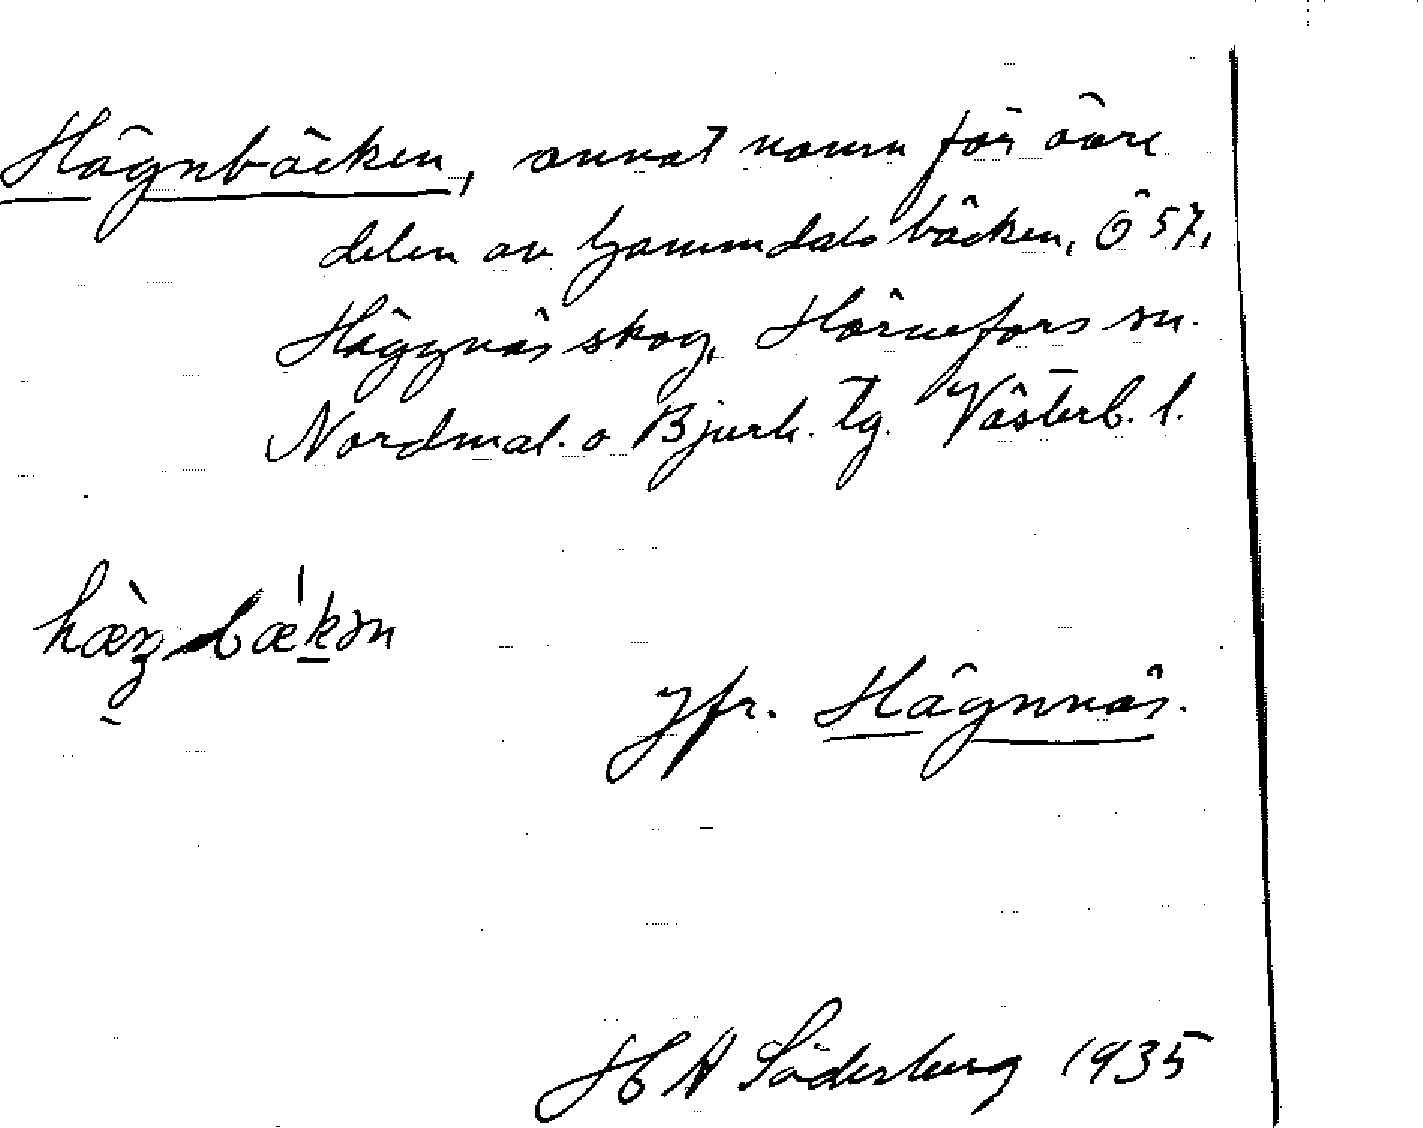 Hägnbäcken, annat namn för övre
delen av Gammdalsbäcken, Ö 57,
Häggnäs skog, Hörnefors sn.
Nordmal. o Bjurh. tg. Västerb. l.
Jfr. Hägnnäs.
H A Söderberg 1935